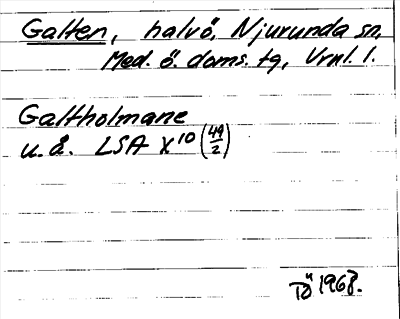 Galten, halvö, Njurunda sn,
Med. ö. doms. tg, Vrnl. l.
Galtholmane
u. å. LSA X10 (49/2)
TÖ 1968.